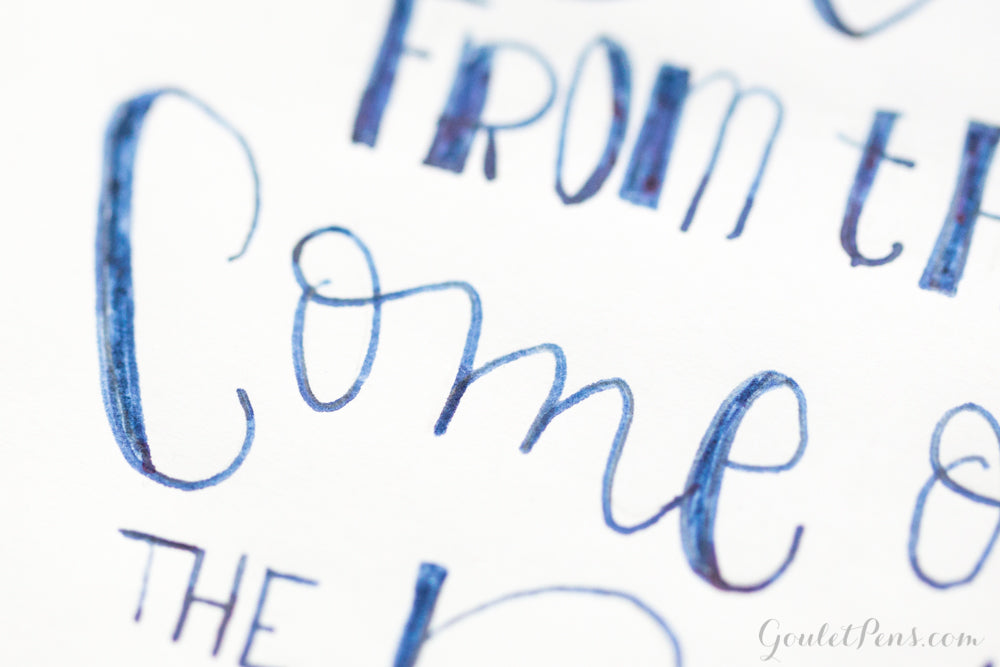 FROM th
Come o
THE
GouletPens.com